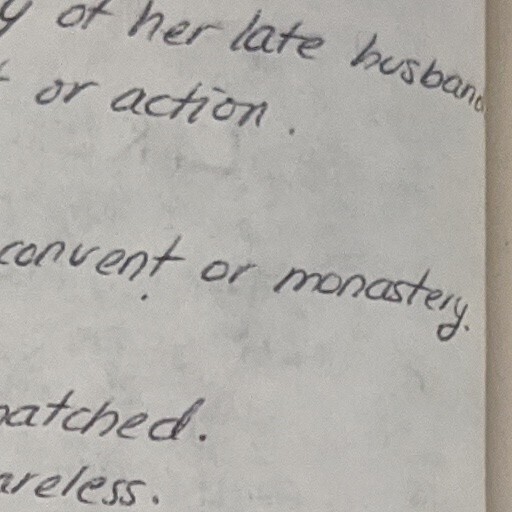 y of her late husband
t or action.
convent or monastery.
patched.
areless.